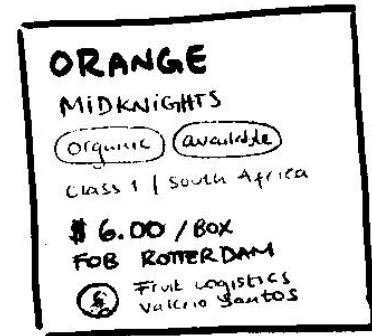 ORANGE
MiDKNiGHTS
organic available
Class 1 | South Africa
$ 6.00 / BOX
FOB ROTTERDAM
Fruit Logistics
Valerio Santos